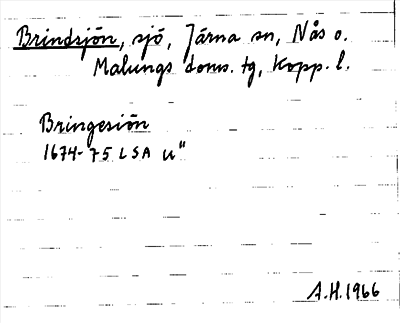 Brindsjön, sjö, Järna sn, Nås o.
Malungs doms. tg, Kopp. l.
Bringesiön
1674-75 LSA u"
A.H. 1966